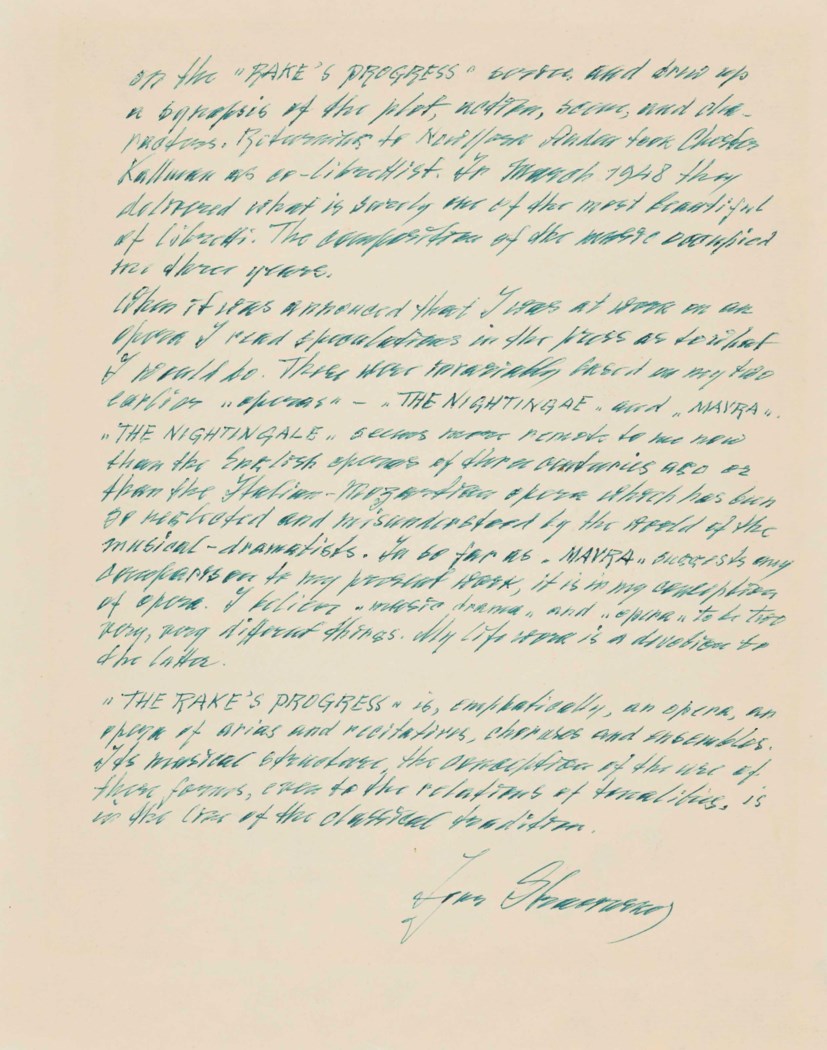 on the "RAKE'S PROGRESS" series, and drew up
a synopsis of the plot, action, scene, and cha-
racters. Returning to New York Auden took Chester
Kallman as co-librettist. In March 1948 they
delivered what is surely one of the most beautiful
of libretti. The composition of the music occupied
me three years.
When it was announced that I was at work on an
opera I read speculations in the press as to what
I would do. These were invariably based on my two
earlier „operas" – „THE NIGHTINGAE" and „MAVRA".
„THE NIGHTINGALE" seems more remote to me now
than the English operas of three centuries ago or
than the Italian-Mozartian opera which has been
so neglected and misunderstood by the world of the
musical-dramatists. In so far as „MAVRA" suggests any
comparison to my present work, it is in my conception
of opera. I believe „music drama" and „opera" to be two
very, very different things. My life work is a devotion to
the latter.
„THE RAKE'S PROGRESS" is, emphatically, an opera, an
opera of arias and recitatives, choruses and ensembles.
Its musical structure, the conception of the use of
these forms, even to the relations of tonalities, is
in the line of the classical tradition.
Igor Strawinsky